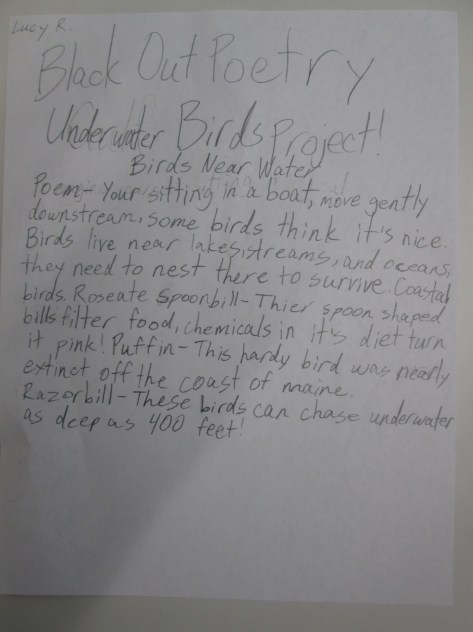 Lucy R.
Black Out Poetry
Underwater Birds Project!
Birds Near Water
Poem- Your sitting in a boat, move gently
downstream, some birds think it's nice.
Birds live near lakes, streams, and oceans,
they need to nest there to survive. Coastal
birds. Roseate Spoonbill- Thier spoon shaped
bills filter food, chemicals in it's diet turn
it pink! Puffin- This hardy bird was nearly
extinct off the coast of maine.
Razorbill- These birds can chase underwater
as deep as 400 feet!